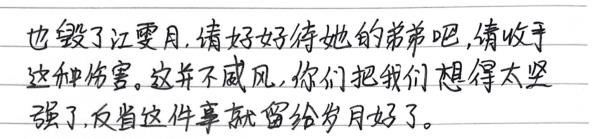 也毁了江雯月,请好好待她的弟弟吧,请收手
这种伤害。这并不威风,你们把我们想得太坚
强了,反省这件事就留给岁月好了。